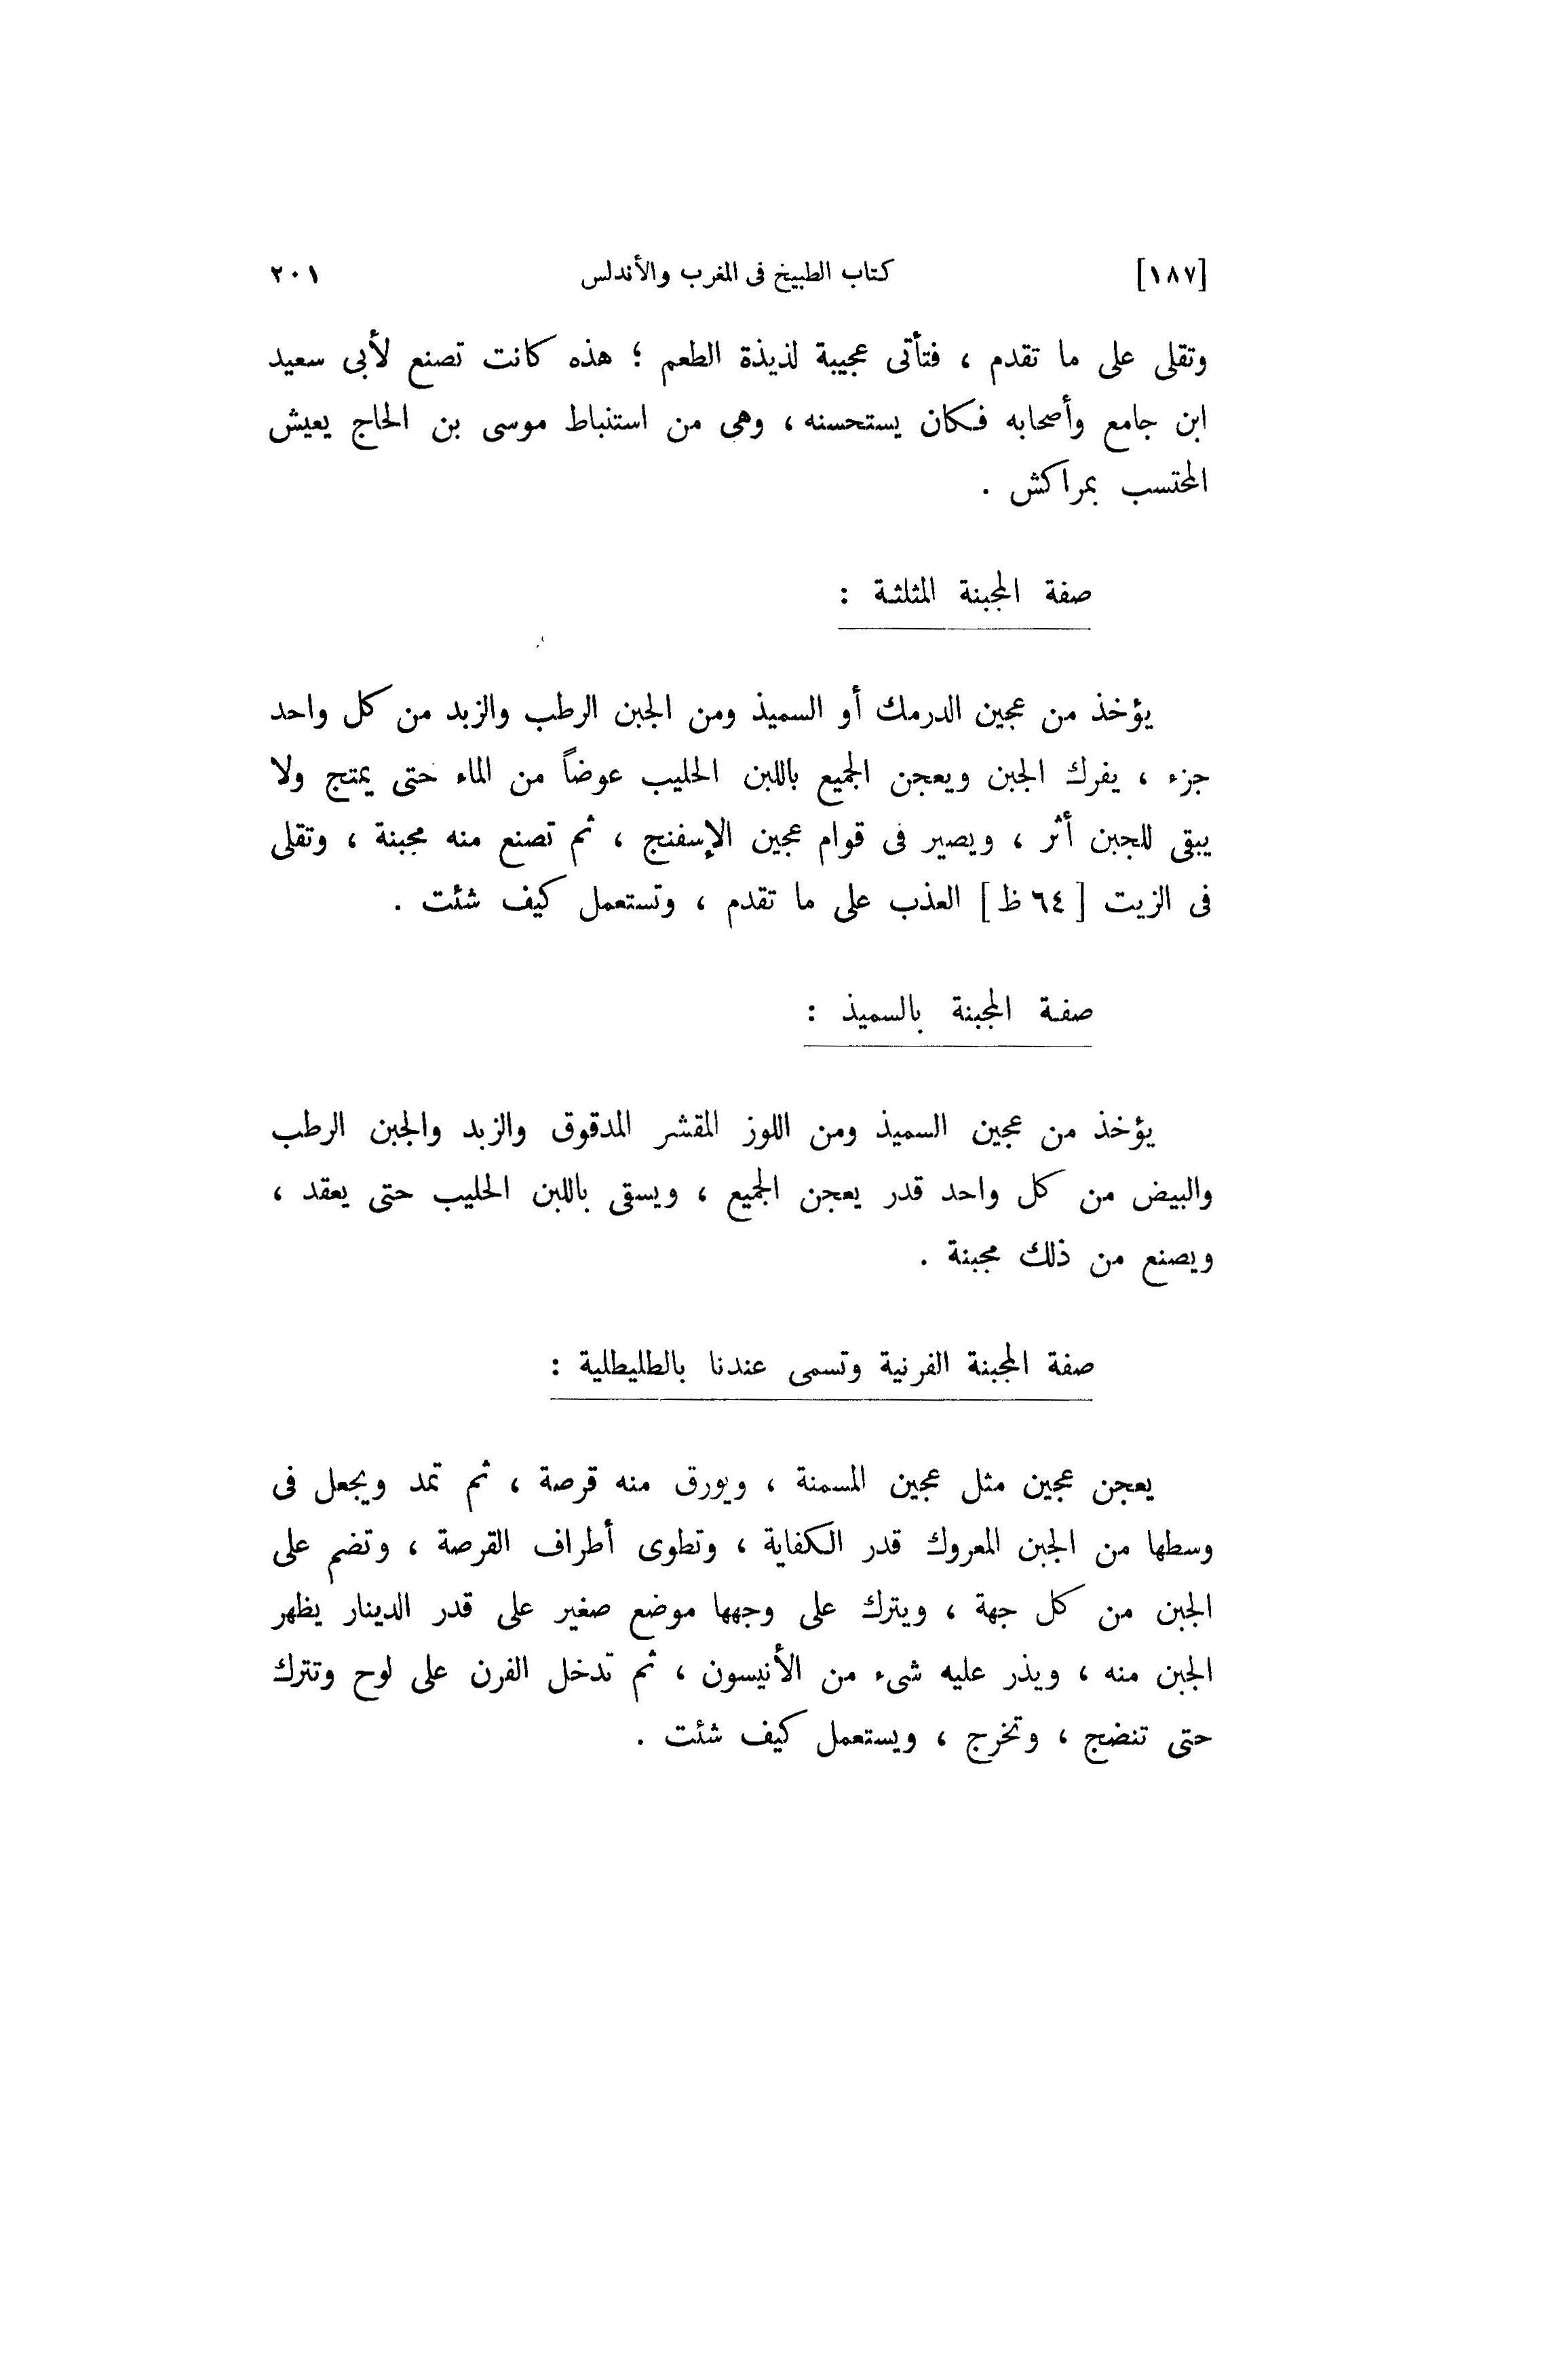 [١٨٧] كتاب الطبيخ فى المغرب والأندلس ٢٠١
وتقلى على ما تقدم ، فتأتى عجيبة لذيذة الطعم ؛ هذه كانت تصنع لأبى سعيد
ابن جامع وأصحابه فكان يستحسنه ، وهى من استنباط موسى بن الحاج يعيش
المحتسب بمراكش .
صفة المجبنة المثلثة :
يؤخذ من عجين الدرمك أو السميذ ومن الجبن الرطب والزبد من كل واحد
جزء ، يفرك الجبن ويعجن الجميع باللبن الحليب عوضاً من الماء حتى يمتج ولا
يبقى للجبن أثر ، ويصير فى قوام عجين الإسفنج ، ثم تصنع منه مجبنة ، وتقلى
فى الزيت [ ٦٤ ظ ] العذب على ما تقدم ، وتستعمل كيف شئت .
صفة المجبنة بالسميذ :
يؤخذ من عجين السميذ ومن اللوز المقشر المدقوق والزبد والجبن الرطب
والبيض من كل واحد قدر يعجن الجميع ، ويسقى باللبن الحليب حتى يعقد ،
ويصنع من ذلك مجبنة .
صفة المجبنة الفرنية وتسمى عندنا بالطليطلية :
يعجن عجين مثل عجين المسمنة ، ويورق منه قرصة ، ثم تمد ويجعل فى
وسطها من الجبن المعروك قدر الكفاية ، وتطوى أطراف القرصة ، وتضم على
الجبن من كل جهة ، ويترك على وجهها موضع صغير على قدر الدينار يظهر
الجبن منه ، ويذر عليه شىء من الأنيسون ، ثم تدخل الفرن على لوح وتترك
حتى تنضج ، وتخرج ، ويستعمل كيف شئت .